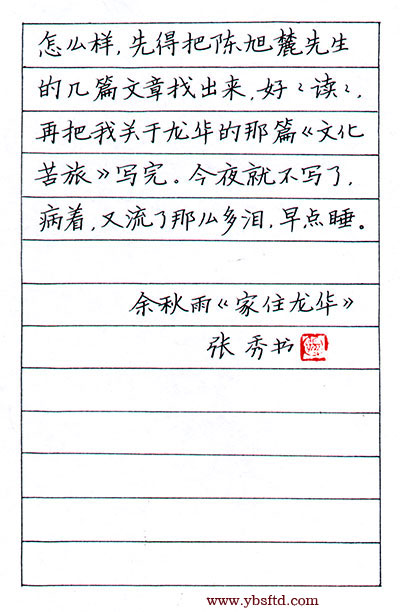 怎么样,先得把陈旭麓先生
的几篇文章找出来,好〻读〻,
再把我关于龙华的那篇《文化
苦旅》写完。今夜就不写了,
病着,又流了那么多泪,早点睡。
余秋雨《家住龙华》
张秀书
www.ybsftd.com